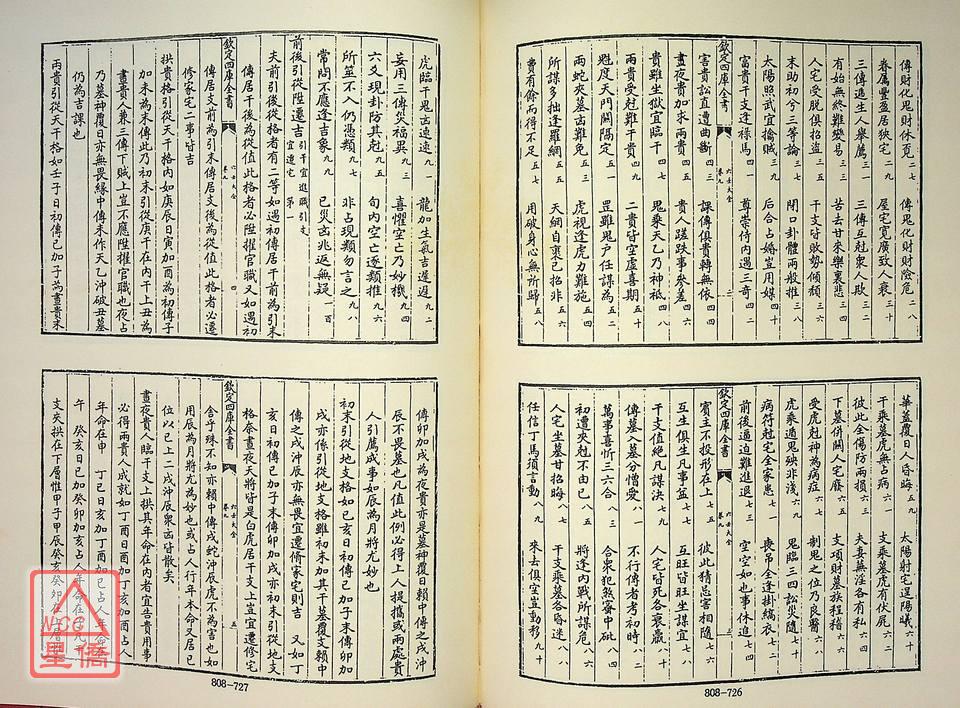 傳財化鬼財休覓 二七 傳鬼化財財險危 二八
眷屬豐盈居狹宅 二九 屋宅寬廣致人衰 三十
三傳遞生人舉薦 三一 三傳互尅衆人欺 三二
有始無終難變易 三三 苦去甘來樂裏悲 三四
人宅受脱俱招盜 三五 干支皆敗勢傾頹 三六
末助初兮三等論 三七 閉口卦體兩般推 三八
太陽照武宜擒賊 三九 后合占婚豈用媒 四十
富貴干支逢禄馬 四一 尊崇傳内遇三奇 四二
欽定四庫全書 六壬大全 卷九 二
害貴訟直遭曲斷 四三 課傳俱貴轉無依 四四
晝夜貴加求兩貴 四五 貴人蹉跌事參差 四六
貴雖坐獄宜臨干 四七 鬼乘天乙乃神祇 四八
兩貴受尅難干貴 四九 二貴皆空虛喜期 五十
魁度天門關隔定 五一 罡塞鬼户任謀為 五二
兩蛇夾墓凶難免 五三 虎視逢虎力難施 五四
所謀多拙逢羅網 五五 天網自裹己招非 五六
費有餘而得不足 五七 用破身心無所歸 五八
華蓋覆日人昏晦 五九 太陽射宅逞陽曦 六十
干乘墓虎無占病 六一 支乘墓虎有伏屍 六二
彼此全傷防兩損 六三 夫妻蕪淫各有私 六四
干墓併關人宅廢 六五 支項財墓族程稽 六六
受虎尅神為病症 六七 制鬼之位乃良醫 六八
虎乘遁鬼殃非淺 六九 鬼臨三四訟災隨 七十
病符尅宅全家患 七一 喪弔全逢掛縞衣 七二
前後逼迫難進退 七三 空空如也事休追 七四
欽定四庫全書 六壬大全 卷九 三
賓主不投刑在上 七五 彼此猜忌害相隨 七六
互生俱生凡事益 七七 互旺皆旺坐謀宜 七八
干支值絶凡謀決 七九 人宅皆死各衰羸 八十
傳墓入墓分憎愛 八一 不行傳者考初時 八二
萬事喜忻三六合 八三 合衆犯煞蜜中砒 八四
初遭夾尅不由己 八五 將逢内戰所謀危 八六
人宅坐墓甘招晦 八七 干支乘墓各昏迷 八八
任信丁馬須言動 八九 來去俱空豈動移 九十
808-726
虎臨干鬼凶速速 九一 龍加生氣吉遲遲 九二
妄用三傳災福異 九三 喜懼空亡乃妙機 九四
六爻現卦防其尅 九五 旬内空亡逐類推 九六
所筮不入仍憑類 九七 非占現類勿言之 九八
常問不應逢吉象 九九 已災凶兆返無疑 一百
前後引從陞遷吉 引干宜進職引支宜遷宅 第一
夫前引後從格者有二等如遇初傳居干前為引末
傳居干後為從值此格者必陞擢官職又如遇初
欽定四庫全書 六壬大全 卷九 四
傳居支前為引末傳居支後為從值此格者必遷
修家宅二事皆吉
拱貴格引從天干格内如庚辰日寅加酉為初傳子
加未為末傳此乃初末引從庚干在内干上丑為
晝貴人兼三傳下賊上豈不應陞擢官職也夜占
乃墓神覆日亦無畏緣中傳未作天乙沖破丑墓
仍為吉課也
兩貴引從天干格如壬子日初傳巳加子為晝貴末
傳卯加戌為夜貴亦是墓神覆日賴中傳之戌沖
辰不畏墓也凡值此例必得上人提攜或兩處貴
人引薦成事如辰為月將尤妙也
初末引從地支格如己亥日初傳巳加子末傳卯加
戌亦係引從地支格雖初末加其干墓復又賴中
傳之戌沖辰亦無畏宜遷脩家宅則吉 又如丁
亥日初傳巳加子末傳卯加戌亦初末引從地支
格奈晝夜天將皆是白虎居干支上豈宜遷修宅
欽定四庫全書 六壬大全 卷九 五
舍乎殊不知亦賴中傳戌蛇沖辰虎不為害也如
用辰為月將尤為妙也或占人行年本命又居巳
位以巳上二戌沖辰衆凶皆散矣
晝夜貴人臨干支上拱其年命在内者宜告貴用事
必得兩貴人成就如丁酉日酉加丁亥加酉占人
年命在申 丁巳日亥加丁酉加巳占人年命在
午 癸亥日巳加癸卯加亥占人年命在子
支夾拱在下層惟甲子甲辰癸亥癸卯在上層
808-727
NCC
星僑